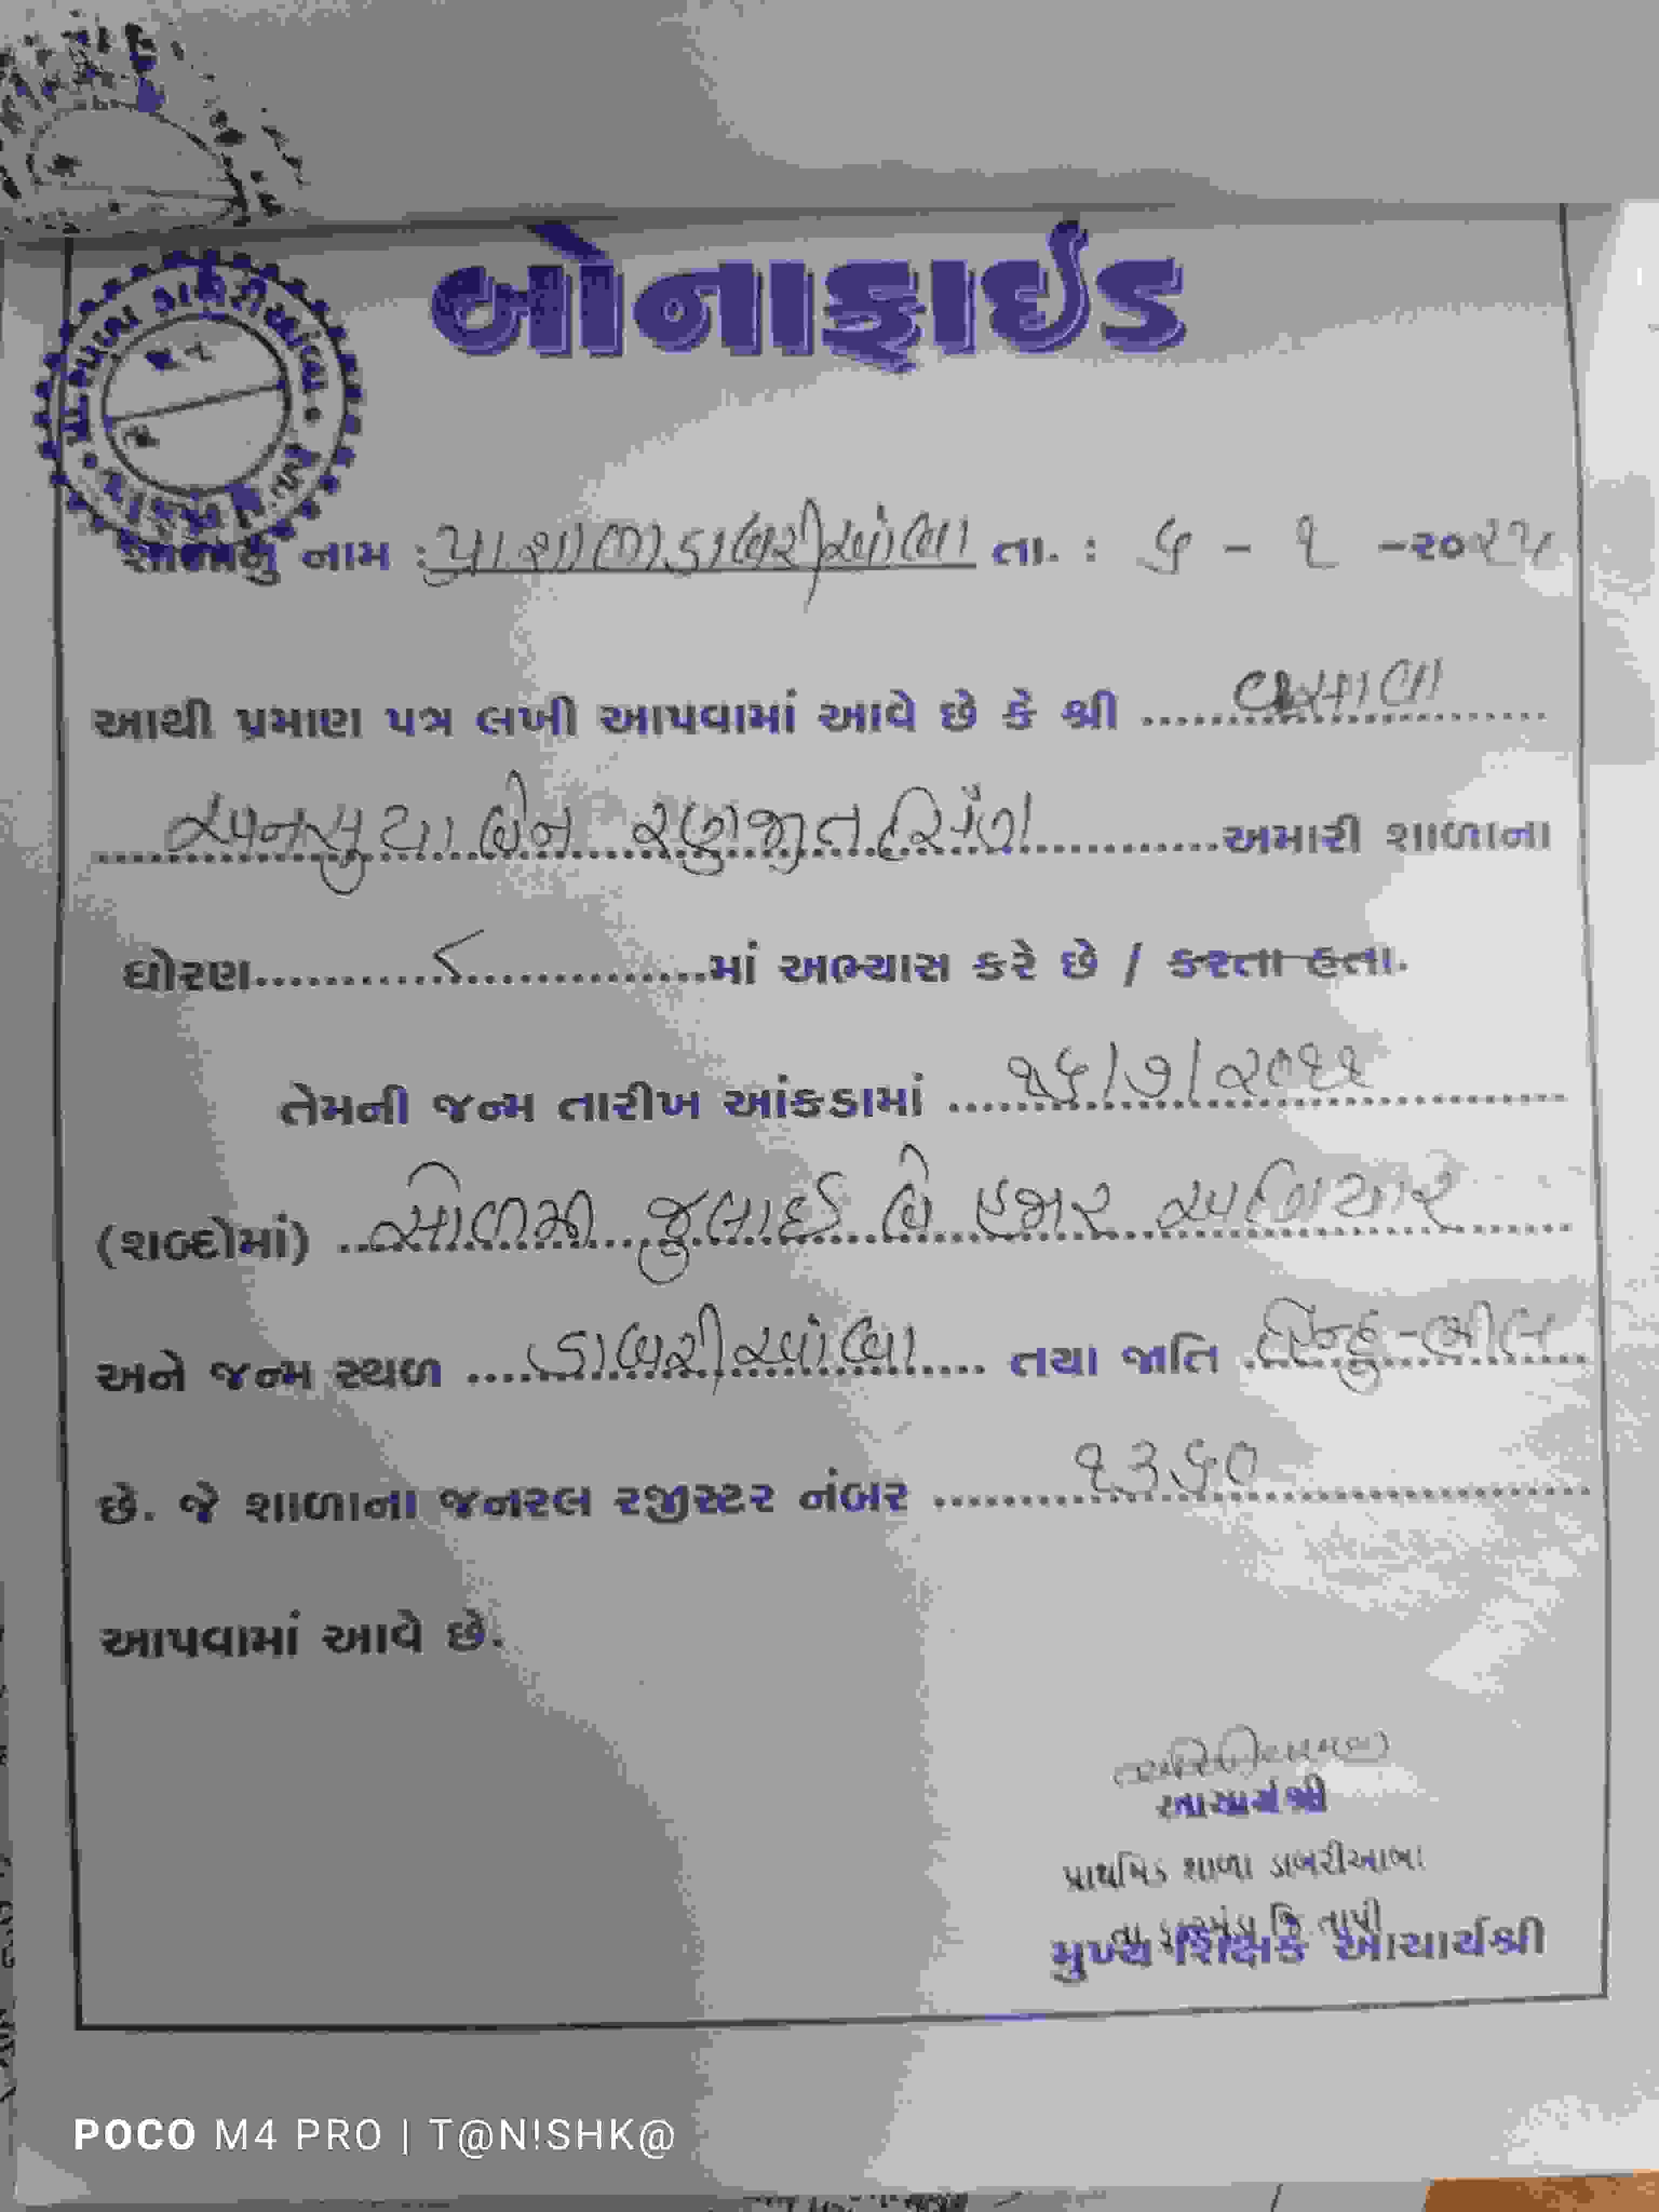 બોનાફાઇડ
શાળાનું નામ : પ્રા.શાળા.ડાબરીઆંબા તા. : ૬ - ૧ -૨૦૨૫
આથી પ્રમાણ પત્ર લખી આપવામાં આવે છે કે શ્રી
અનસુયાબેન રણજીતસિંગ અમારી શાળાના
ધોરણ ૮ માં અભ્યાસ કરે છે / કરતા હતા.
તેમની જન્મ તારીખ આંકડામાં ૧૬/૭/૨૦૧૧
(શબ્દોમાં) સોળમી જુલાઈ બે હજાર અગિયાર
અને જન્મ સ્થળ ડાબરીઆંબા તથા જાતિ હિન્દુ-ભીલ
છે. જે શાળાના જનરલ રજીસ્ટર નંબર ૧૩૬૦
આપવામાં આવે છે.
પ્રાથમિક શાળા ડાબરીઆંબા
તા જિ તાપી
મુખ્ય શિક્ષક આચાર્યશ્રી
POCO M4 PRO | T@N!SHK@